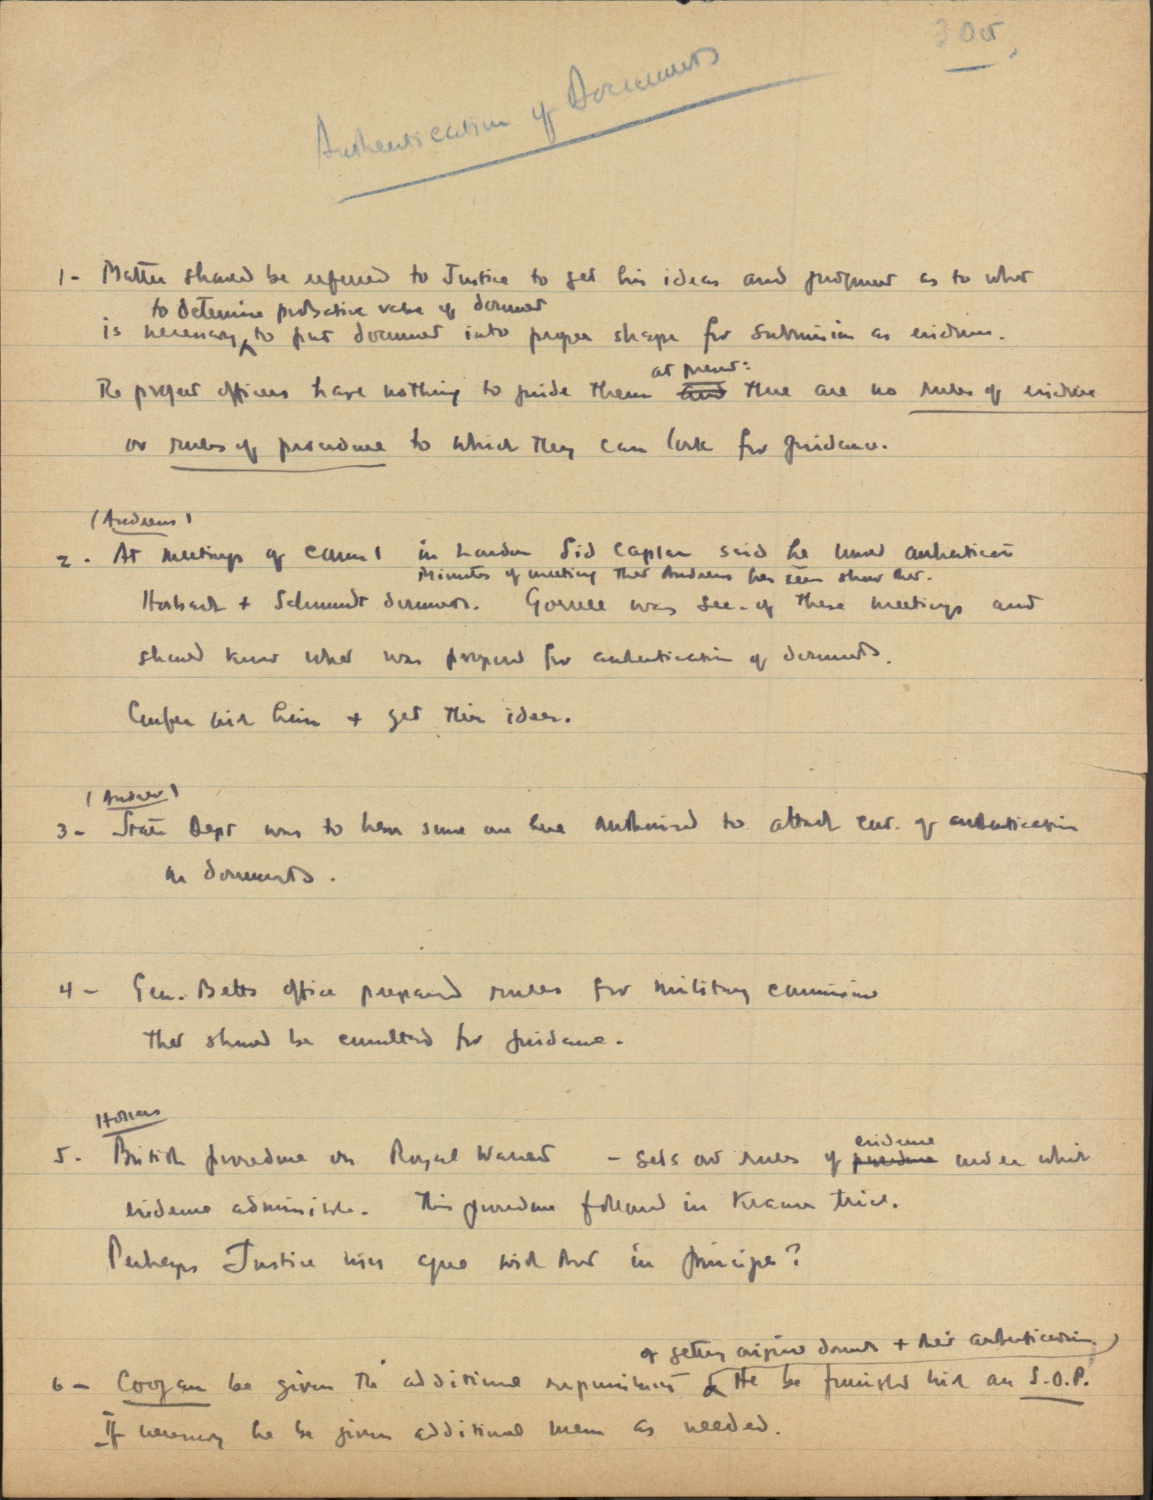 3 Oct.
Authentication of Documents
1- Matter should be referred to Justice to get his ideas and judgment as to what
to determine probative value of document
is necessary to put document into proper shape for submission as evidence.
at present:
project officers have nothing to guide them and there are no rules of evidence
or rules of procedure to which they can look for guidance.
(Andrews)
2. At meetings of in London Sid Caplan said he authenticate
Minutes of meeting that Andrews has seen show that.
Hosbach + Schmundt documents. was sec. of these meetings and
should know what was proposed for authentication of documents.
Confer with him + get their ideas.
(Andrews)
3- State Dept was to have some one here authorized to attach cert. of authentication
on documents.
4- Gen. Betts office prepared rules for military commissions
that should be consulted for guidance.
5. British procedure on Royal Warrant - sets out rules of evidence procedure under which
evidence admissible. This procedure followed in Kramer trial.
Perhaps Justice will agree with that in principle?
of getting original documents + their authentication)
6- Coogan be given the additional responsibility He be furnished with an S.O.P.
If necessary he be given additional men as needed.